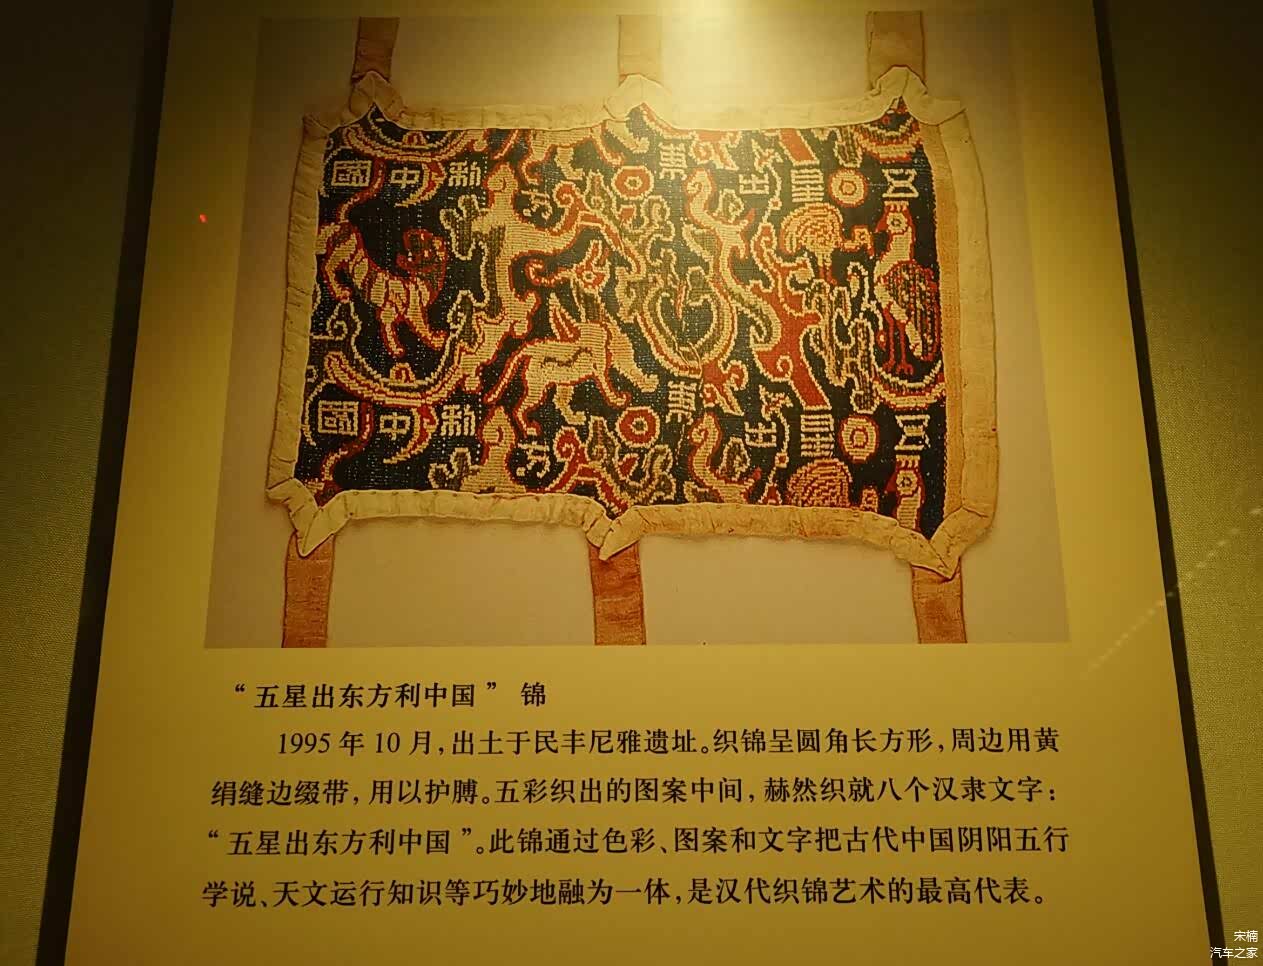 五星出東方利中國
五星出東方利中國
“五星出东方利中国” 锦
1995 年 10 月，出土于民丰尼雅遗址。织锦呈圆角长方形，周边用黄
绢缝边缀带，用以护膊。五彩织出的图案中间，赫然织就八个汉隶文字：
“五星出东方利中国”。此锦通过色彩、图案和文字把古代中国阴阳五行
学说、天文运行知识等巧妙地融为一体，是汉代织锦艺术的最高代表。
宋楠
汽车之家